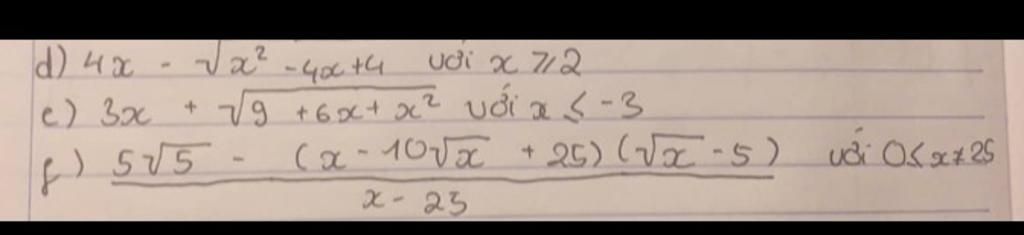 d) 4x - √x² - 4x + 4 với x ≥ 2
e) 3x + √9 + 6x + x² với x ≤ -3
f) 5√5 - (x - 10√x + 25)(√x - 5) với 0 ≤ x ≠ 25
x - 25